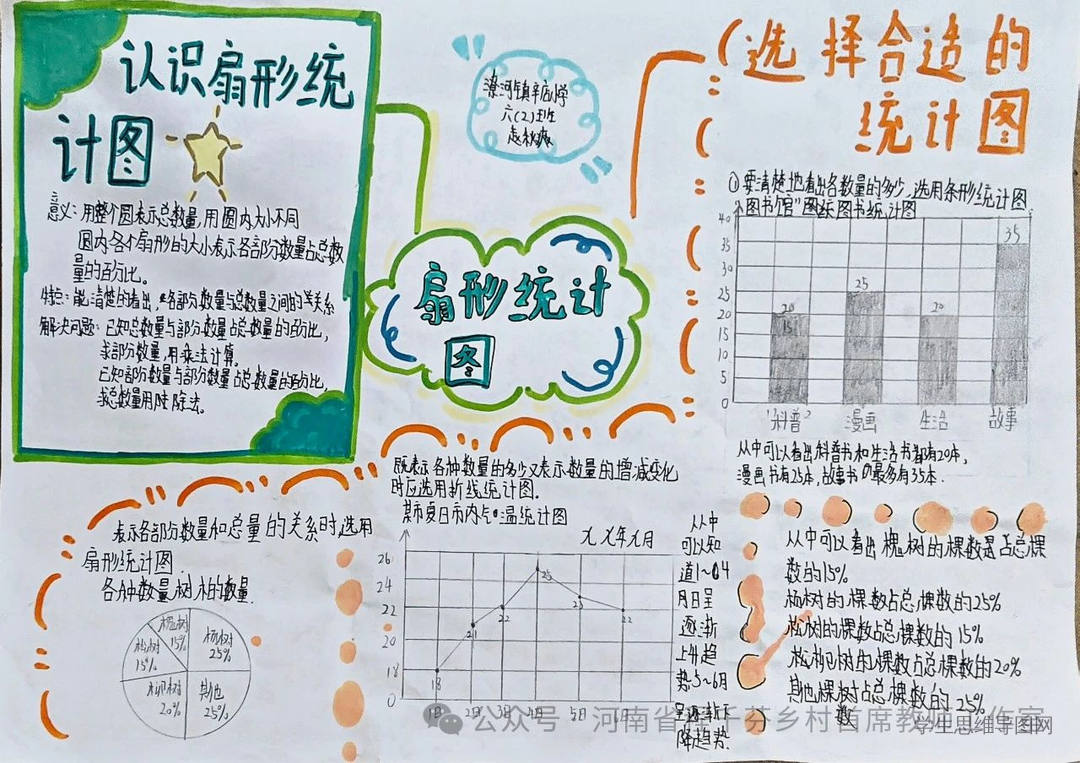 认识扇形统
计图
意义：用整个圆表示总数量，用圆内大小不同
圆内各个扇形的大小表示各部分数量占总数
量的百分比。
特点：能清楚的看出，各部分数量与总数量之间的关系
解决问题：已知总数量与部分数量占总数量的百分比，
求部分数量，用乘法计算。
已知部分数量与部分数量占总数量的百分比，
求总数量用除法。
六(2)班
扇形统计
图
选择合适的
统计图
①要清楚地看出各数量的多少，选用条形统计图
图书统计图
40
35
30
25
20
15
10
5
0
20
15
25
20
35
科普
漫画
生活
故事
从中可以看出科普书和生活书都有20本，
漫画书有25本，故事书最多有35本．
既表示各种数量的多少又表示数量的增减变化
时应选用折线统计图．
某市夏日市内气温统计图
九九年九月
26
24
22
20
18
0
18
21
22
25
23
22
1日
2日
3日
4日
5日
6日
从中
可以知
道1~04
月日呈
逐渐
上升趋
势5~6月
呈逐渐下
降趋势．
表示各部分数量和总量的关系时，选用
扇形统计图．
各种数量树木的数量
槐树
15%
杨树
25%
松树
15%
柳树
20%
其他
25%
从中可以看出槐树的棵数是占总棵
数的15%
杨树的棵数占总棵数的25%
松树的棵数占总棵数的15%
柳树的棵数占总棵数的20%
其他棵树占总棵数的25%
数
公众号 河南省
千芬乡村首席教师工作室
学生思维导图网